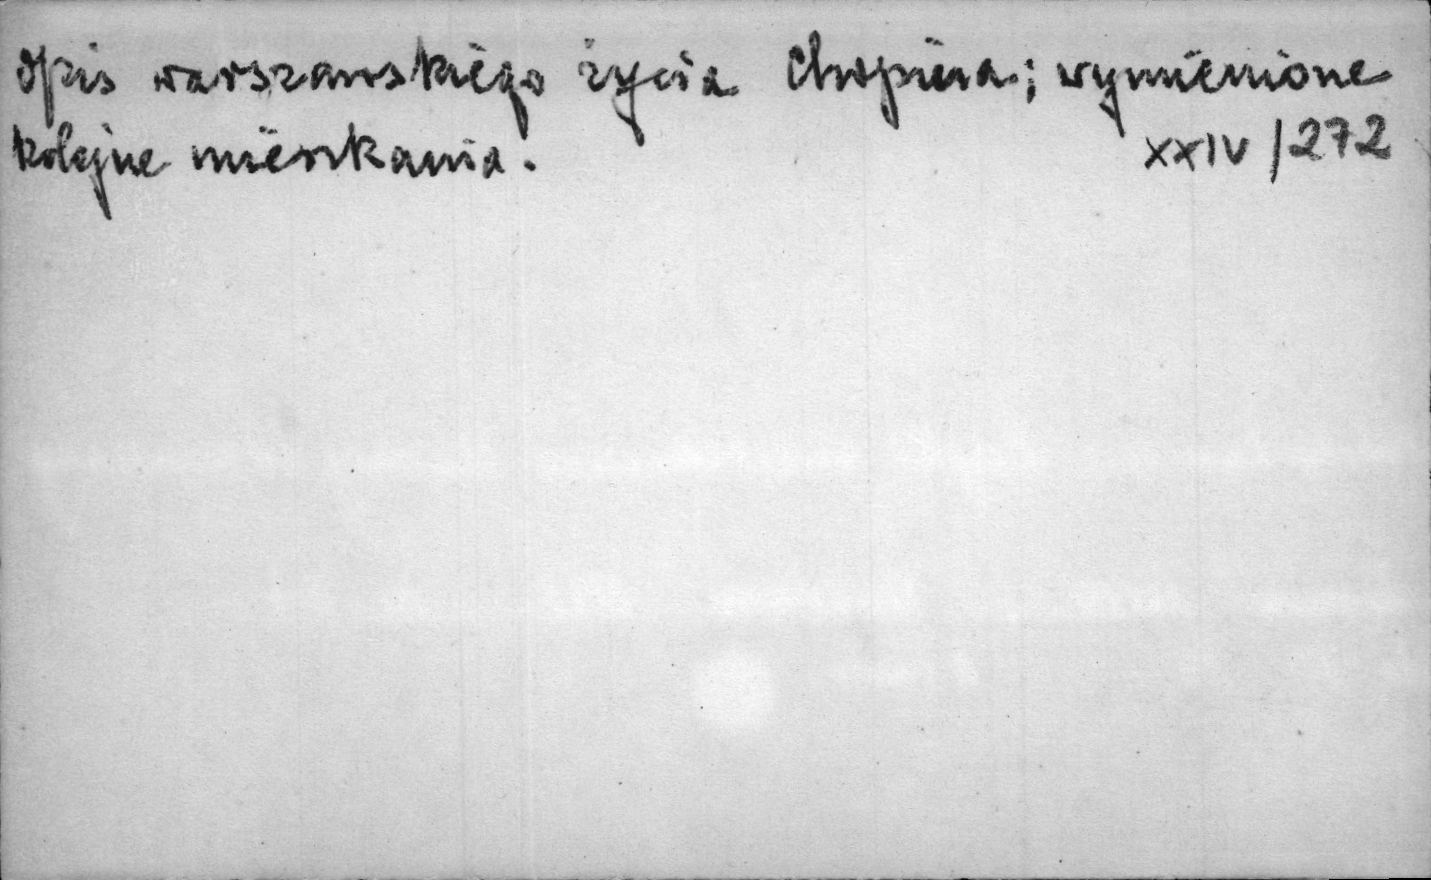 opis warszawskiego życia Chopina; wymienione
kolejne mieszkania.
XXIV/272